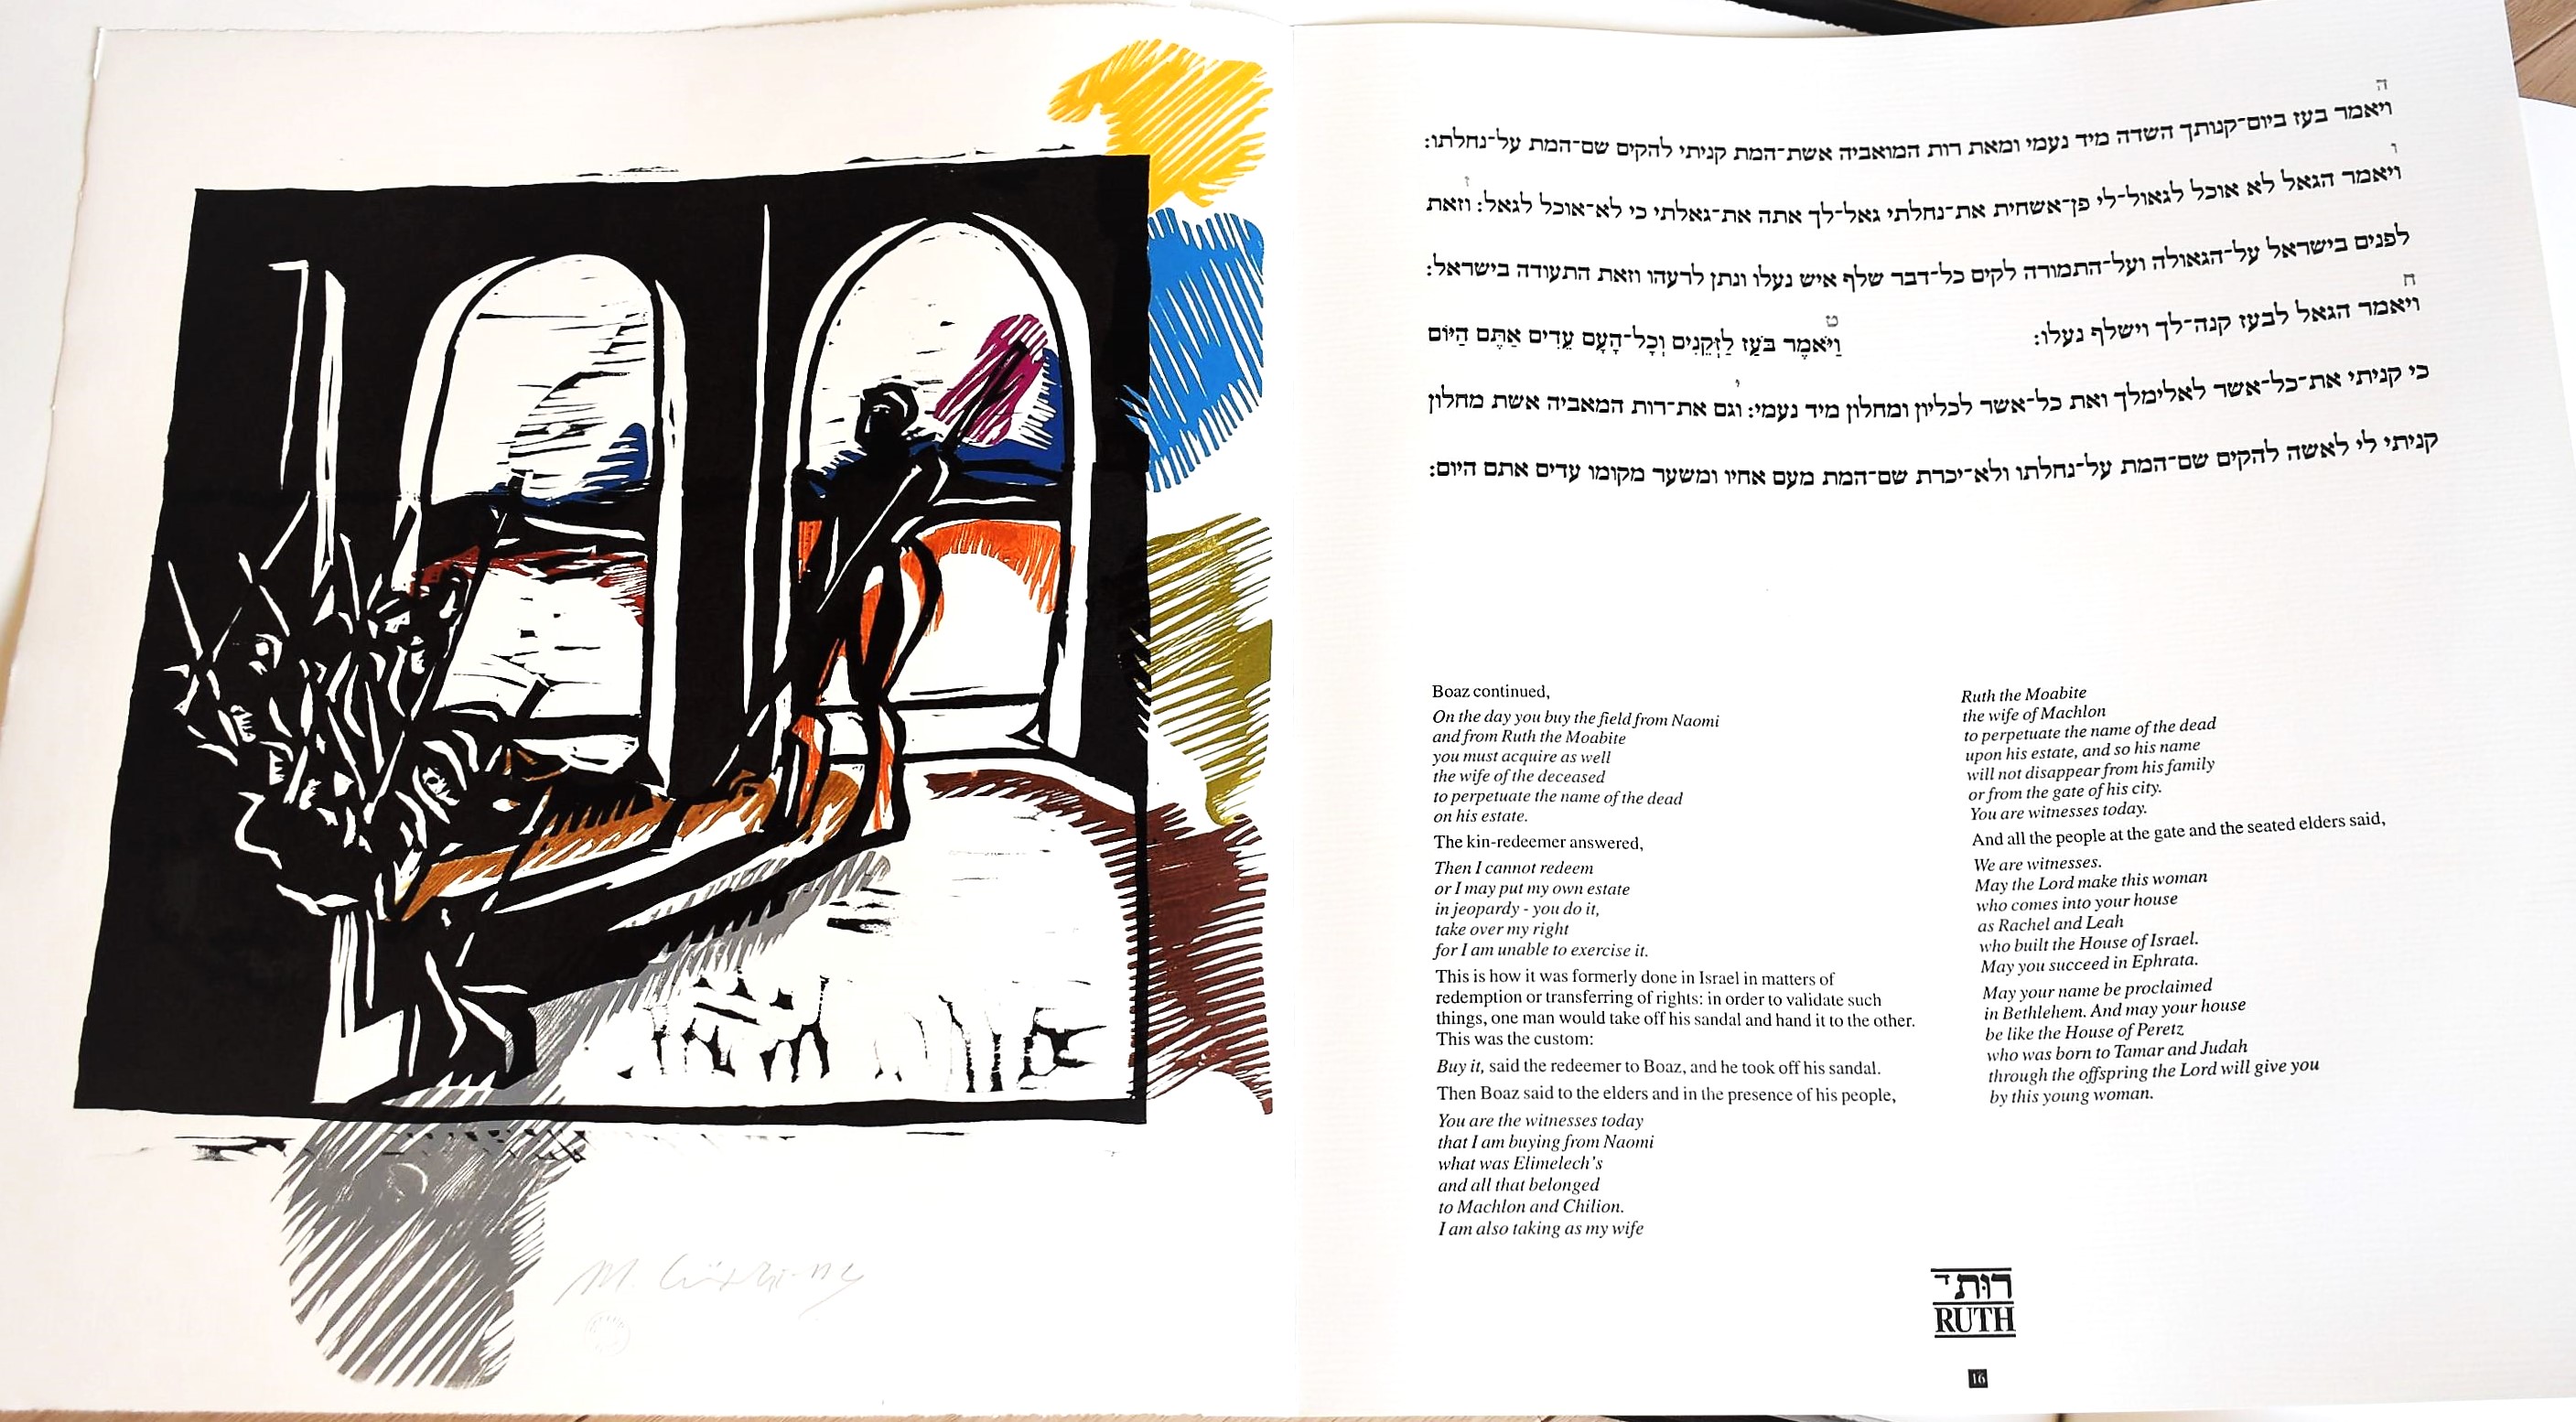 ה
ויאמר בעז ביום־קנותך השדה מיד נעמי ומאת רות המואביה אשת־המת קניתי להקים שם־המת על־נחלתו:
ו ז
ויאמר הגאל לא אוכל לגאול־לי פן־אשחית את־נחלתי גאל־לך אתה את־גאלתי כי לא־אוכל לגאל: וזאת
לפנים בישראל על־הגאולה ועל־התמורה לקים כל־דבר שלף איש נעלו ונתן לרעהו וזאת התעודה בישראל:
ח ט
ויאמר הגאל לבעז קנה־לך וישלף נעלו: וַיֹּאמֶר בֹּעַז לַזְּקֵנִים וְכָל־הָעָם עֵדִים אַתֶּם הַיּוֹם
י
כי קניתי את־כל־אשר לאלימלך ואת כל־אשר לכליון ומחלון מיד נעמי: וגם את־רות המאביה אשת מחלון
קניתי לי לאשה להקים שם־המת על־נחלתו ולא־יכרת שם־המת מעם אחיו ומשער מקומו עדים אתם היום:
Boaz continued,
On the day you buy the field from Naomi
and from Ruth the Moabite
you must acquire as well
the wife of the deceased
to perpetuate the name of the dead
on his estate.
The kin-redeemer answered,
Then I cannot redeem
or I may put my own estate
in jeopardy - you do it,
take over my right
for I am unable to exercise it.
This is how it was formerly done in Israel in matters of
redemption or transferring of rights: in order to validate such
things, one man would take off his sandal and hand it to the other.
This was the custom:
Buy it, said the redeemer to Boaz, and he took off his sandal.
Then Boaz said to the elders and in the presence of his people,
You are the witnesses today
that I am buying from Naomi
what was Elimelech's
and all that belonged
to Machlon and Chilion.
I am also taking as my wife
Ruth the Moabite
the wife of Machlon
to perpetuate the name of the dead
upon his estate, and so his name
will not disappear from his family
or from the gate of his city.
You are witnesses today.
And all the people at the gate and the seated elders said,
We are witnesses.
May the Lord make this woman
who comes into your house
as Rachel and Leah
who built the House of Israel.
May you succeed in Ephrata.
May your name be proclaimed
in Bethlehem. And may your house
be like the House of Peretz
who was born to Tamar and Judah
through the offspring the Lord will give you
by this young woman.
רות ד
RUTH
16